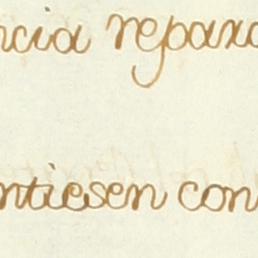 ncia repara
ntiesen con